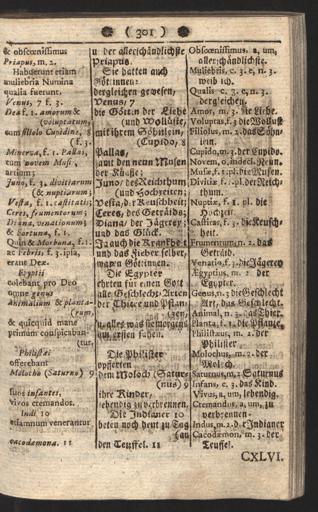 ( 301 )
& obscœnissimus
Priapus, m. 2.
Habuerunt etiam
muliebria Numina
qualia fuerunt.
Venus, 7 f. 3.
Dea f. 1. amorum &
(voluptatum,
cum filiolo Cupidine, 8
(f. 3.
Minerva, f. 1. Pallas,
cum novem Musis,
artium;
Juno, f. 3. divitiarum
(& nuptiarum;
Vesta, f. 1. castitatis;
Ceres, frumentorum;
Diana, venationum;
& fortuna, f. 1.
Quin & Morbona, f. 1.
ac Febris, f. 3. ipsa,
erant Deæ.
Egyptii
colebant pro Deo
omne genus
Animalium & planta-
(rum,
& quicquid mane
primùm conspiciebant
(tur.
Philistæi
offerebant
Molocho (Saturno) 9
suos infantes,
vivos cremandos.
Indi 10
etiamnum venerantur
cacodæmona. 11
u der allerschändlichste
Priapus.
Sie hatten auch
Göttinnen:
dergleichen gewesen,
Venus, 7
die Göttin der Liebe
(und Wollüste,
mit ihrem Söhnlein,
(Cupido, 8
Pallas,
samt den neun Musen
der Künste;
Juno, des Reichthum
(und Hochzeiten;
Vesta, der Keuschheit;
Ceres, des Getraids;
Diana, der Jägerey;
und das Glück.
Ja auch die Krankheit
und das Fieber selber,
waren Göttinnen.
Die Egypter
ehrten für einen Gott
alle Geschlecht-Arten
der Thiere und Pflan-
zen,
u. alles was sie morgens
am ersten sahen.
Die Philister
opfferten
dem Moloch (Satur-
(nus) 9
ihre Kinder,
lebendig zu verbrennen.
Die Indianer 10
beten noch heut zu Tag
(an
den Teuffel. 11
Obscœnissimus, a, um,
allerschändlichste.
Muliebris, c. 3. e, n. 3.
weibisch.
Qualis, c. 3. e, n. 3.
dergleichen.
Amor, m. 3. die Liebe.
Voluptas, f. 3 die Wollust
Filiolus, m. 2. das Söhn-
lein.
Cupido, m. 3. der Cupido.
Novem, o, indecl. Neun.
Musæ, f. 1. pl. die Musen.
Divitiæ f. 1. pl. der Reich-
thum.
Nuptiæ, f. 1. pl. die
Hochzeit.
Castitas, f. 3. die Keusch-
heit.
Frumentum, n. 2. das
Getraid.
Venatio, f. 3. die Jägerey
Ægyptius, m. 2. der
Egypter.
Genus, n. 3 die Geschlecht
Art, das Geschlecht.
Animal, n. 3. das Thier.
Planta, f. 1. die Pflanze.
Philistæus, m. 2. der
Philister
Molochus, m. 2. der
Moloch.
Saturnus, m. 2. Saturnus
Infans, c. 3. das Kind.
Vivus, a, um, lebendig.
Cremandus, a, um, zu
verbrennen.
Indus, m. 2. der Indianer
Cacodæmon, m. 3. der
Teuffel.
CXLVI.